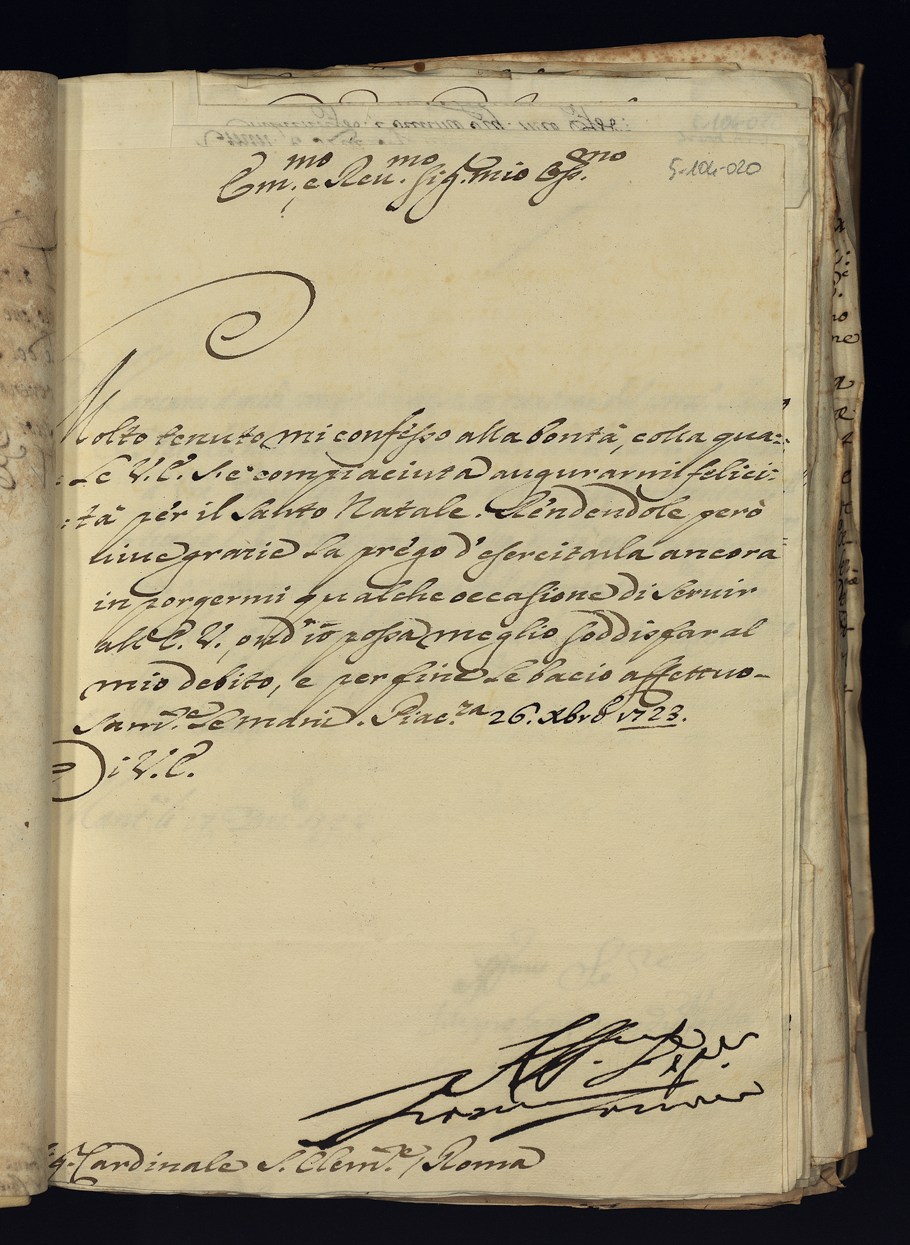 5-104-020
Em.mo e Reu.mo Sig.r mio Oss.mo
Molto tenuto mi confesso alla bontà, colla qua=
=le V.E. s'è compiaciuta augurarmi felici=
=tà per il Santo Natale. Rendendole però
viue grazie la prego d'esercitarla ancora
in porgermi qualche occasione di seruir
all'E.V., ond'io possa meglio soddisfar al
mio debito, e per fine le bacio affettuo-
sam.te le mani. Piac.za 26. Xbre 1723.
Di V.E.
Aff.
Sig. Cardinale S. Clem.te / Roma